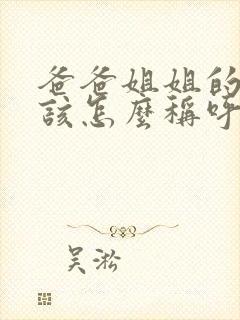 爸爸姐姐的
该怎麼稱呼
吴淞